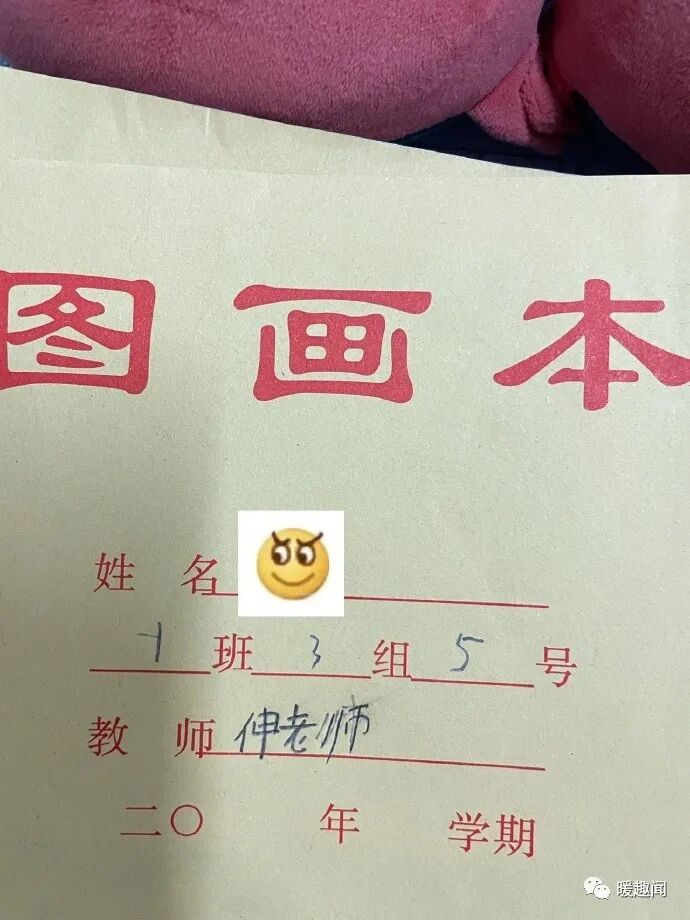 图画本
姓名
1班3组5号
教师 伸老师
二〇 年 学期
暖趣闻